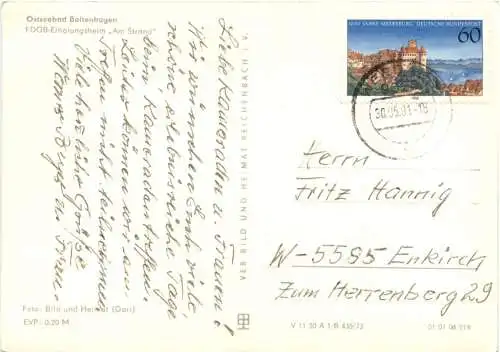 Ostseebad Boltenhagen
FDGB-Erholungsheim „Am Strand"
Liebe Kameraden u. Frauen!
Wir wünschen Euch viele
schöne erlebnisreiche Tage
beim Kameradentreffen.
Leider können wir an
Treffen nicht teilnehmen
Viele herzliche Grüße
Hans u. Frau.
Foto: Bild und Heimat (Dari)
EVP: 0,20 M
VEB BILD UND HEIMAT REICHENBACH i. V.
1000 JAHRE MEERSBURG DEUTSCHE BUNDESPOST
60
30.05.91-18
Herrn
Fritz Hannig
W-5585 Enkirch
Zum Herrenberg 29
V 11 30 A 1/B 435/73
01 01 04 019